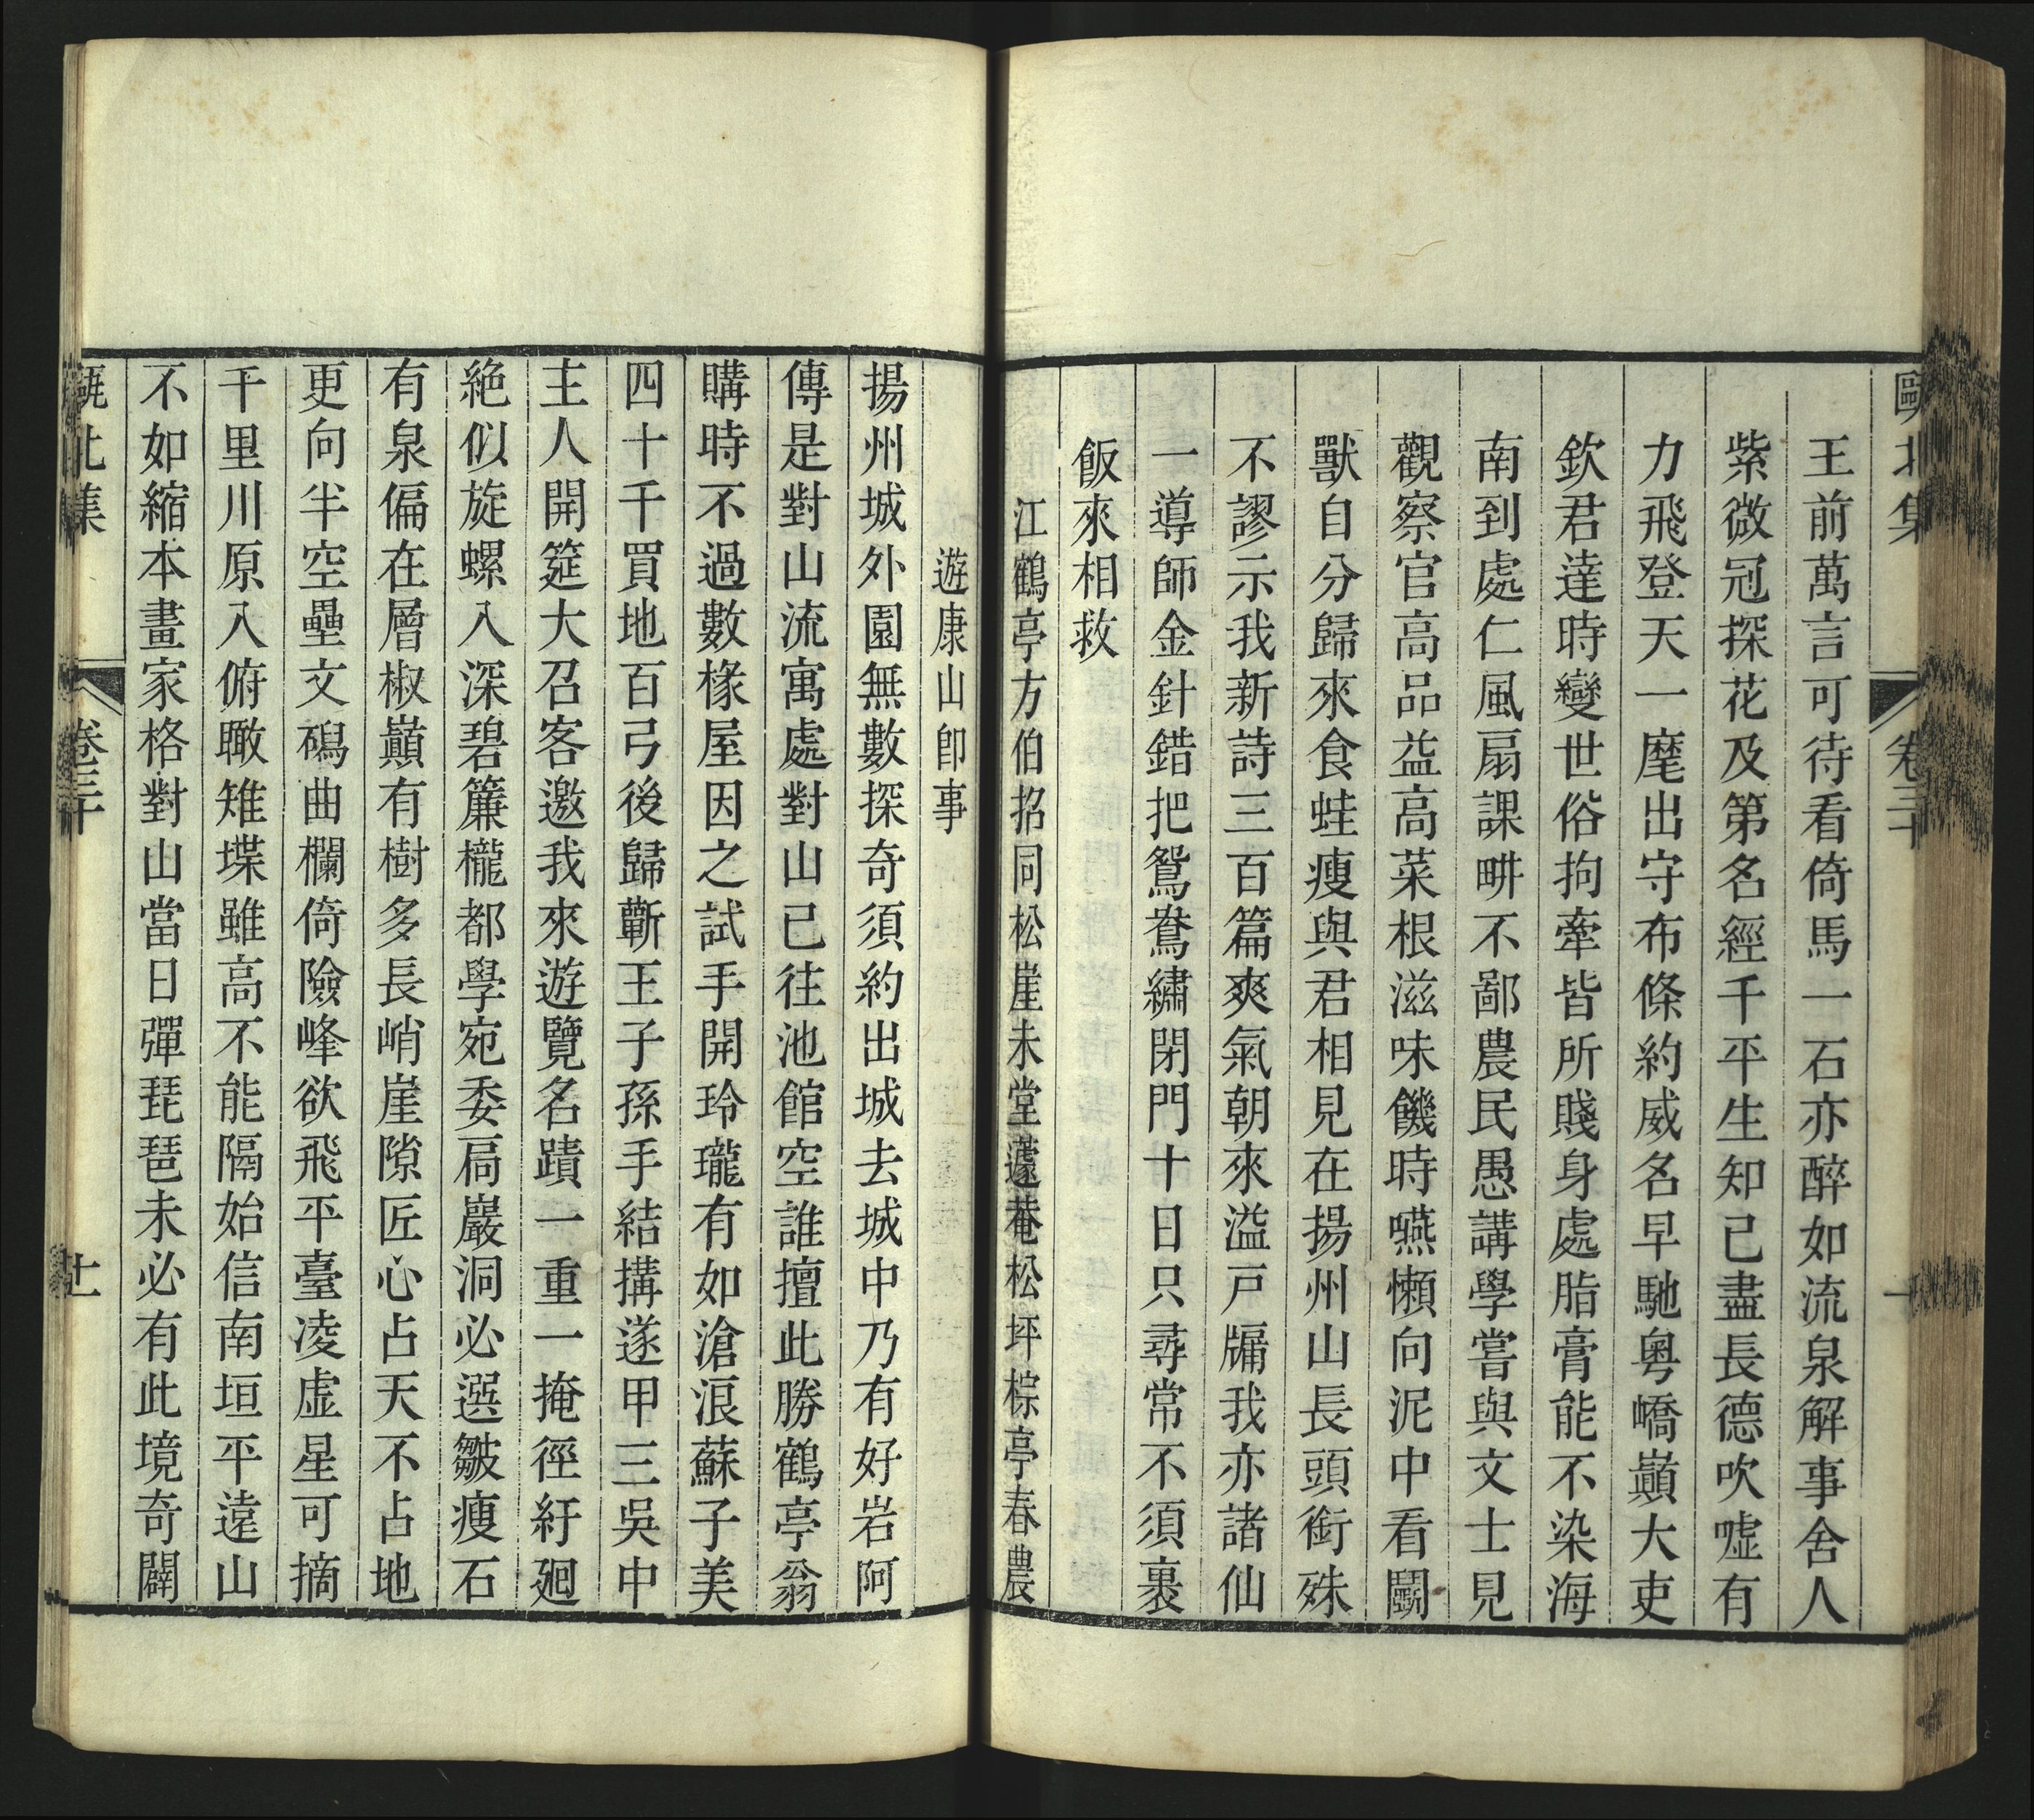 甌北集 卷三十
王前萬言可待看倚馬一石亦醉如流泉解事舍人
紫微冠探花及第名經千平生知已盡長德吹噓有
力飛登天一麾出守布條約威名早馳粵嶠巔大吏
欽君達時變世俗拘牽皆所賤身處脂膏能不染海
南到處仁風扇課畊不鄙農民愚講學嘗與文士見
觀察官高品益高菜根滋味饑時嚥懶向泥中看鬭
獸自分歸來食蛙瘦與君相見在揚州山長頭銜殊
不謬示我新詩三百篇爽氣朝來溢戸牖我亦諸仙
一導師金針錯把鴛鴦繡閉門十日只尋常不須裹
飯來相救
江鶴亭方伯招同松崖未堂蘧菴松坪棕亭春農
遊康山卽事
揚州城外園無數探奇須約出城去城中乃有好岩阿
傳是對山流寓處對山已往池館空誰擅此勝鶴亭翁
購時不過數椽屋因之試手開玲瓏有如滄浪蘇子美
四十千買地百弓後歸蘄王子孫手結搆遂甲三吳中
主人開筵大召客邀我來遊覽名蹟一重一掩徑紆廻
絶似旋螺入深碧簾櫳都學宛委扃巖洞必選皺瘦石
有泉偏在層椒巔有樹多長峭崖隙匠心占天不占地
更向半空壘文磶曲欄倚險峰欲飛平臺凌虛星可摘
千里川原入俯瞰雉堞雖高不能隔始信南垣平遠山
不如縮本畫家格對山當日彈琵琶未必有此境奇闢
甌北集 卷三十 十一